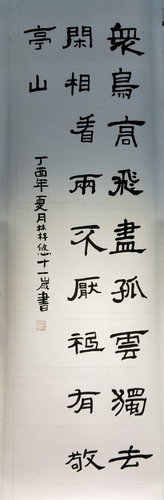 衆鳥高飛盡孤雲獨去
閑相看兩不厭衹有敬
亭山
丁酉年夏月林梓悠十一歲書